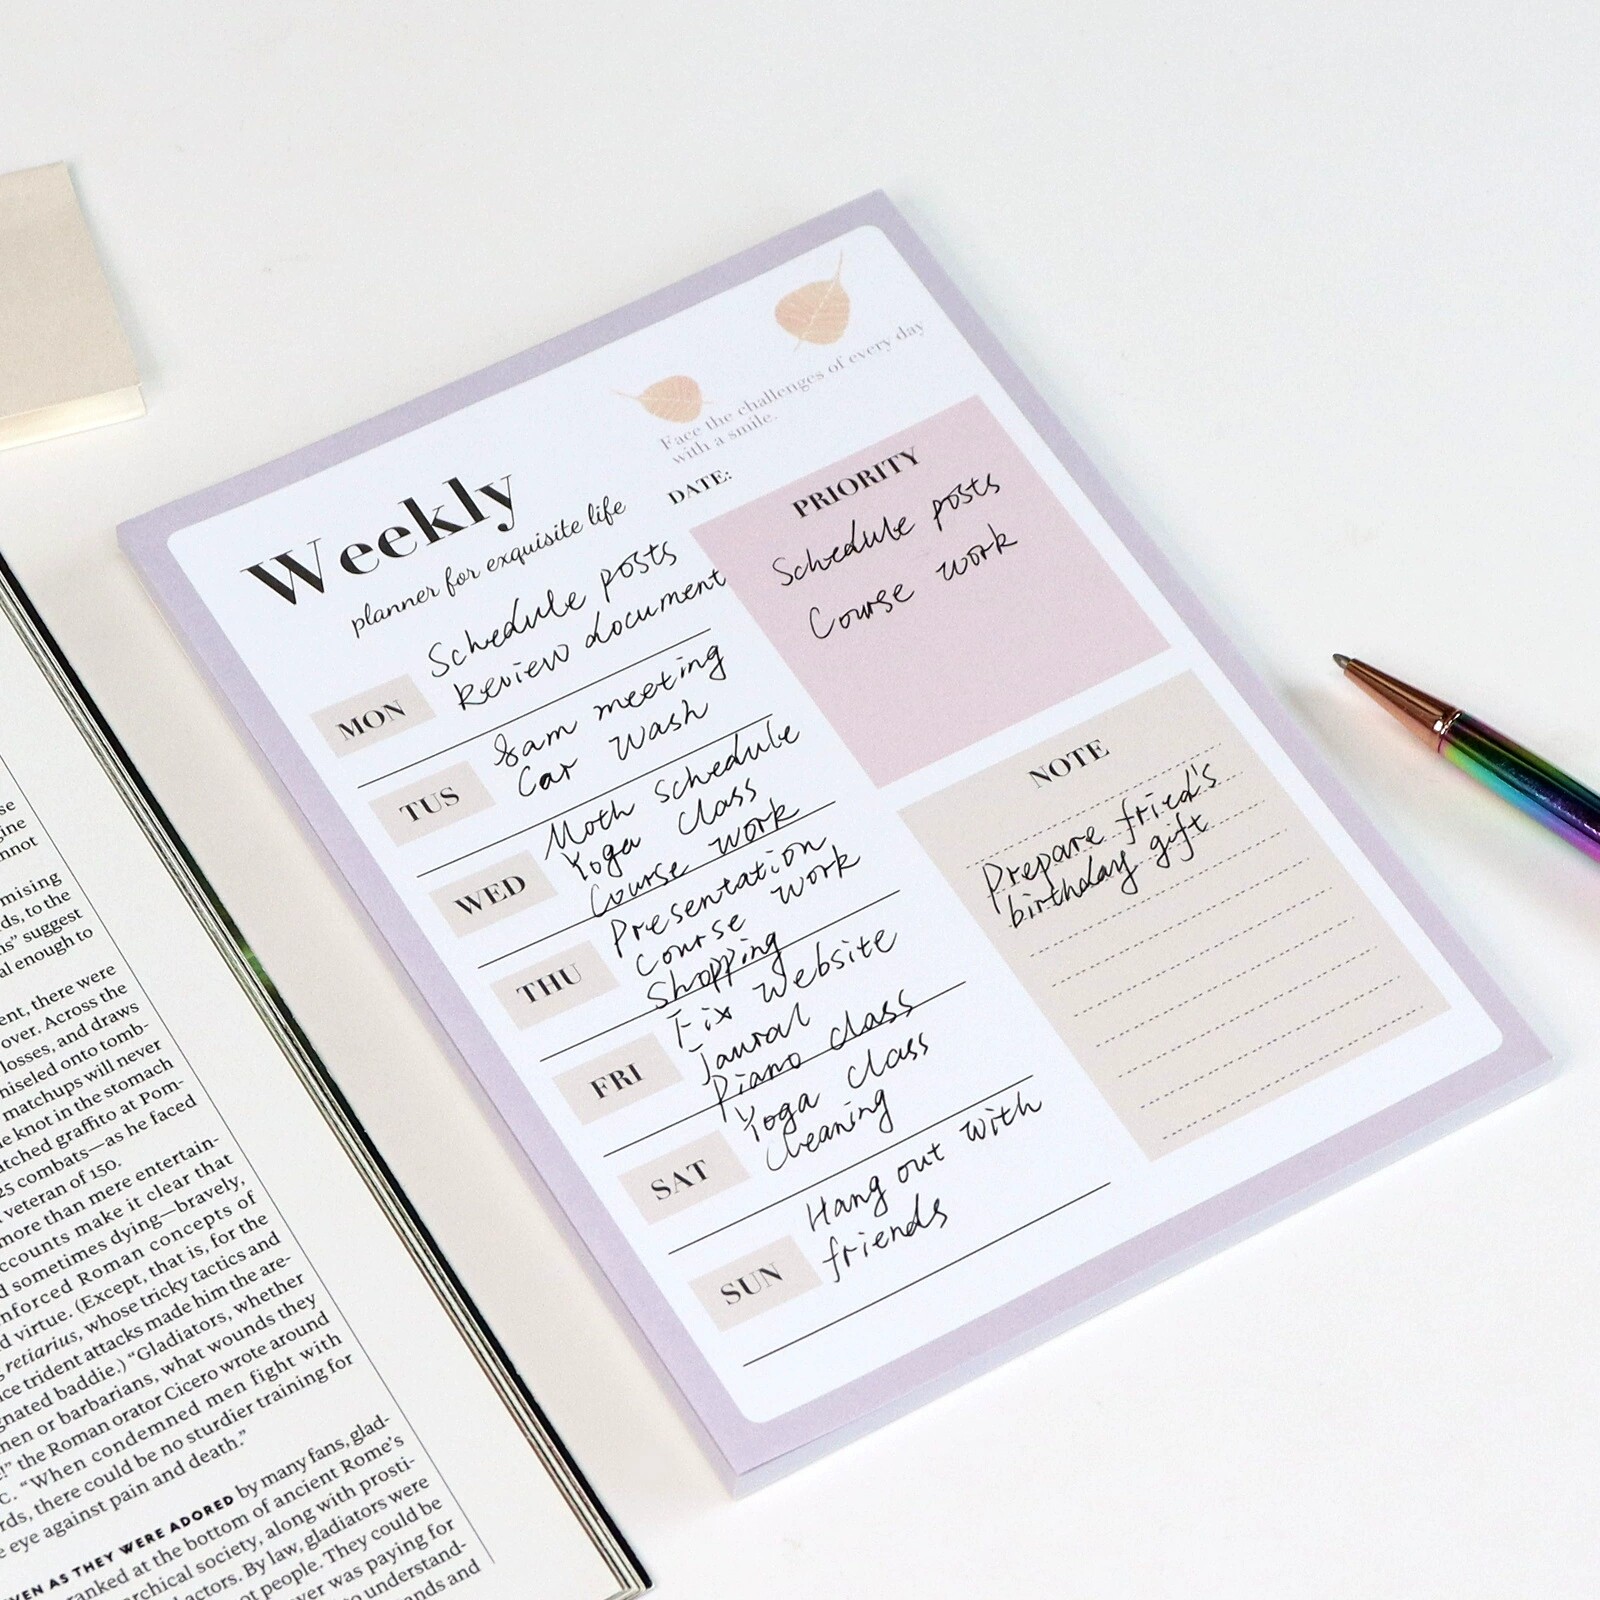 Face the challenges of every day
with a smile.
Weekly
planner for exquisite life
DATE:
MON
Schedule posts
Review document
TUS
8am meeting
Car wash
WED
Moth schedule
Yoga class
Course work
THU
Presentation
course work
Shopping
FRI
Fix website
Jaural
Piano class
SAT
Yoga class
cleaning
SUN
Hang out with
friends
PRIORITY
Schedule posts
Course work
NOTE
Prepare fried's
birthday gift
se
gine
nnot
mising
rds, to the
ns" suggest
al enough to
ent, there were
over. Across the
losses, and draws
niseled onto tomb-
matchups will never
e knot in the stomach
atched graffito at Pom-
25 combats—as he faced
veteran of 150.
more than mere entertain-
ccounts make it clear that
d sometimes dying—bravely,
nforced Roman concepts of
d virtue. (Except, that is, for the
retiarius, whose tricky tactics and
ce trident attacks made him the are-
gnated baddie.) “Gladiators, whether
men or barbarians, what wounds they
!” the Roman orator Cicero wrote around
C. “When condemned men fight with
rds, there could be no sturdier training for
e eye against pain and death.”
VEN AS THEY WERE ADORED by many fans, glad-
ranked at the bottom of ancient Rome’s
archical society, along with prosti-
actors. By law, gladiators were
ot people. They could be
ver was paying for
o understand-
ands and